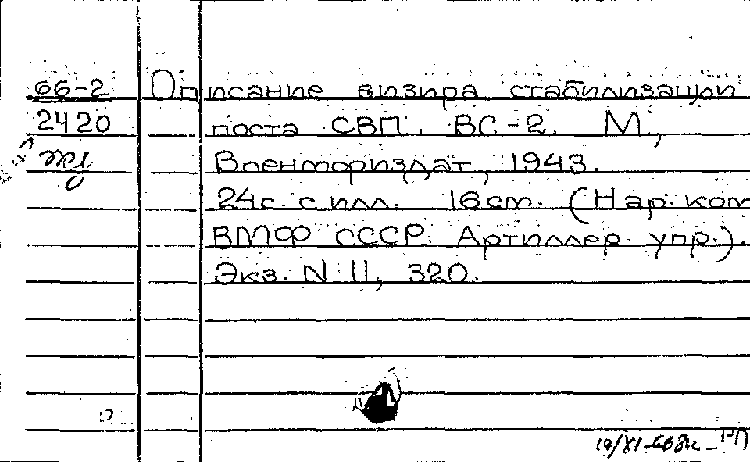 66-2 Описание визира стабилизации
2420 поста СВП. ВС-2. М.,
Военмориздат, 1943.
24с. с илл. 16см. (Нар. ком
ВМФ СССР. Артиллер. упр.).
Экз. N 11, 320.